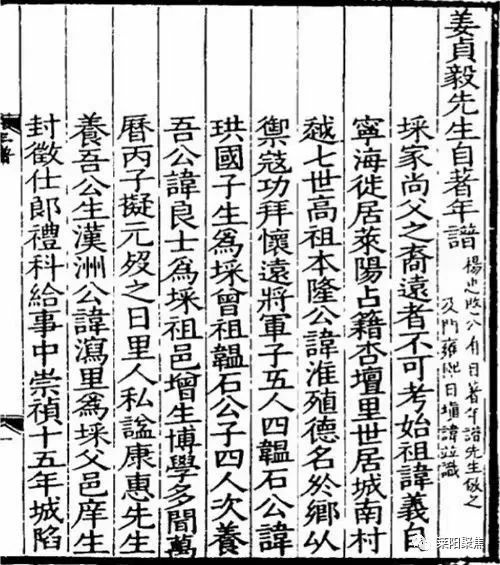 姜貞毅先生自著年譜
楊忠愍公有自著年譜先生倣之
及門雍熙日壖諱並識
埰家尚父之裔遠者不可考始祖諱義自
寧海徙居萊陽占籍杏壇里世居城南村
越七世高祖本隆公諱淮殖德名於鄉以
禦寇功拜懷遠將軍子五人四韞石公諱
珙國子生爲埰曾祖韞石公子四人次養
吾公諱良士爲埰祖邑增生博學多聞萬
曆丙子擬元歿之日里人私諡康惠先生
養吾公生漢洲公諱瀉里爲埰父邑庠生
封徵仕郎禮科給事中崇禎十五年城陷
年譜
莱阳聚焦